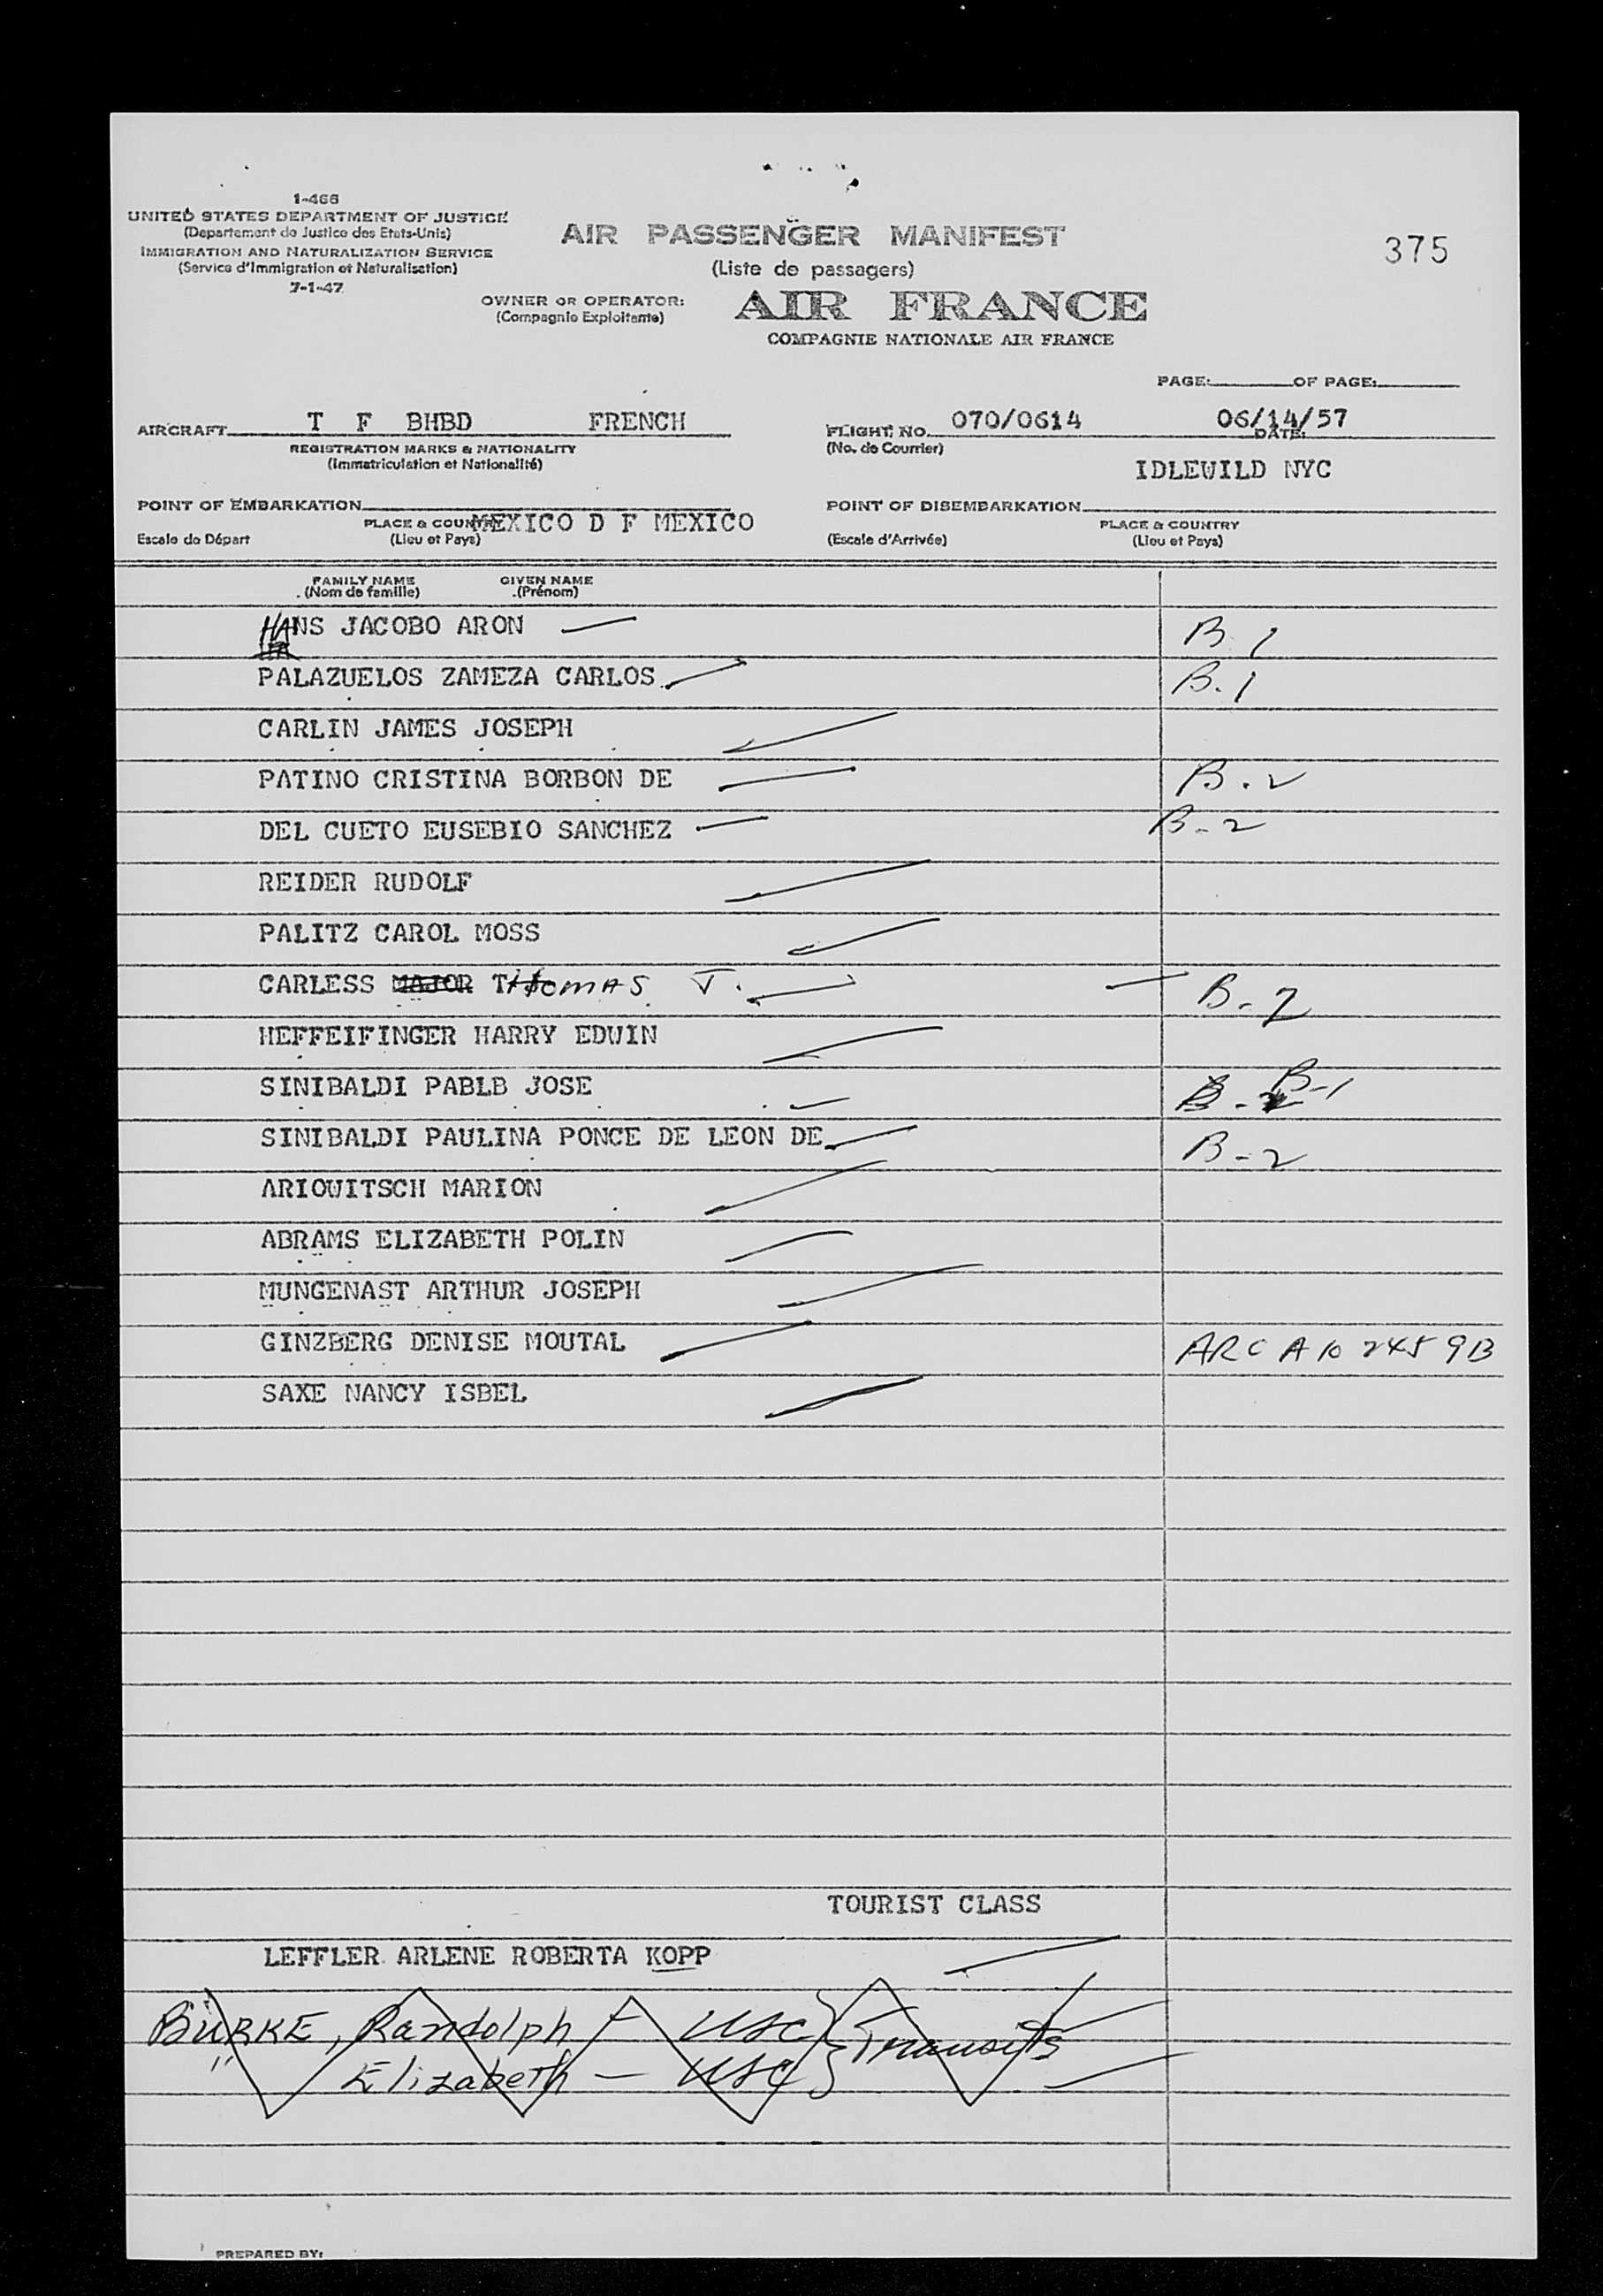 1-466
UNITED STATES DEPARTMENT OF JUSTICE
(Departement de Justice des Etats-Unis)
IMMIGRATION AND NATURALIZATION SERVICE
(Service d'Immigration et Naturalisation)
7-1-47
AIR PASSENGER MANIFEST
(Liste de passagers)
375
OWNER OR OPERATOR:
(Compagnie Exploitante)
AIR FRANCE
COMPAGNIE NATIONALE AIR FRANCE
PAGE: OF PAGE:
AIRCRAFT T F BHBD FRENCH
REGISTRATION MARKS & NATIONALITY
(Immatriculation et Nationalité)
FLIGHT NO. 070/0614 06/14/57
DATE:
(No. de Courrier)
IDLEWILD NYC
POINT OF EMBARKATION
PLACE & COUNTRY MEXICO D F MEXICO
Escale de Départ (Lieu et Pays)
POINT OF DISEMBARKATION
PLACE & COUNTRY
(Escale d'Arrivée) (Lieu et Pays)
FAMILY NAME GIVEN NAME
(Nom de famille) (Prénom)
HANS JACOBO ARON B 1
PALAZUELOS ZAMEZA CARLOS B. 1
CARLIN JAMES JOSEPH
PATINO CRISTINA BORBON DE B. 2
DEL CUETO EUSEBIO SANCHEZ B-2
REIDER RUDOLF
PALITZ CAROL MOSS
CARLESS MAJOR THOMAS J. B-2
HEFFEIFINGER HARRY EDWIN
SINIBALDI PABLB JOSE B-2 B-1
SINIBALDI PAULINA PONCE DE LEON DE B-2
ARIOWITSCH MARION
ABRAMS ELIZABETH POLIN
MUNGENAST ARTHUR JOSEPH
GINZBERG DENISE MOUTAL ARC A10 245 9B
SAXE NANCY ISBEL
TOURIST CLASS
LEFFLER ARLENE ROBERTA KOPP
BURKE, Randolph - USC } Transits
" Elizabeth - USC
PREPARED BY: